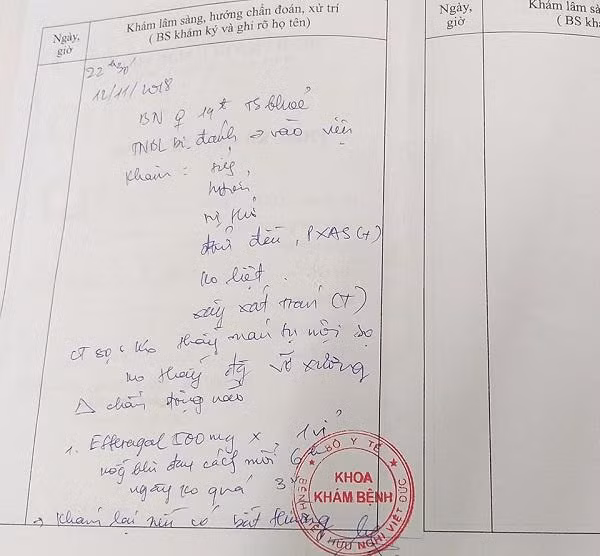 Ngày, giờ
Khám lâm sàng, hướng chẩn đoán, xử trí
( BS khám ký và ghi rõ họ tên)
22h30'
12/11/2018
BN ♀ 19t TS khoẻ
TNDL bị đánh → vào viện
Khám : tỉnh,
đồng tử đều, PXAS (+)
ko liệt.
xây xát trán (T)
CT sọ : Ko thấy máu tụ nội sọ
ko thấy đg vỡ xương
Δ chấn động não
1. Efferagal 500mg x 1 vỉ
uống khi đau cách mỗi 6h
ngày ko quá 3v
→ Khám lại nếu có bất thường
BỘ Y TẾ
KHOA
KHÁM BỆNH
BỆNH VIỆN HỮU NGHỊ VIỆT ĐỨC
Ngày, giờ
Khám lâm sà
( BS khá